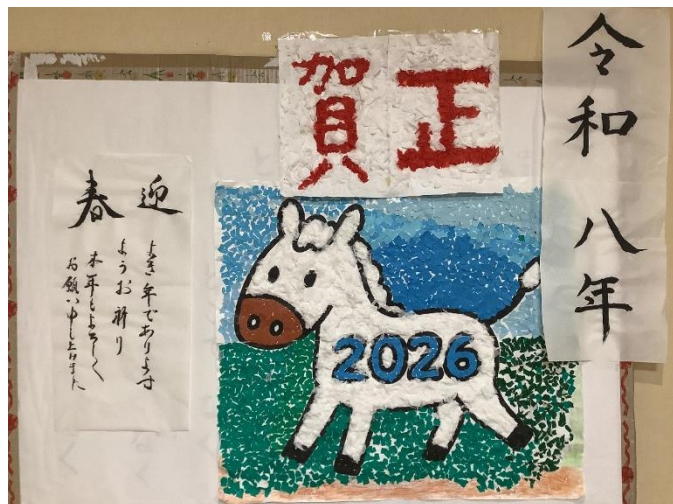 令和 八年
賀正
2026
迎春
よき年であります
ようお祈り
本年もよろしく
お願い申し上げます